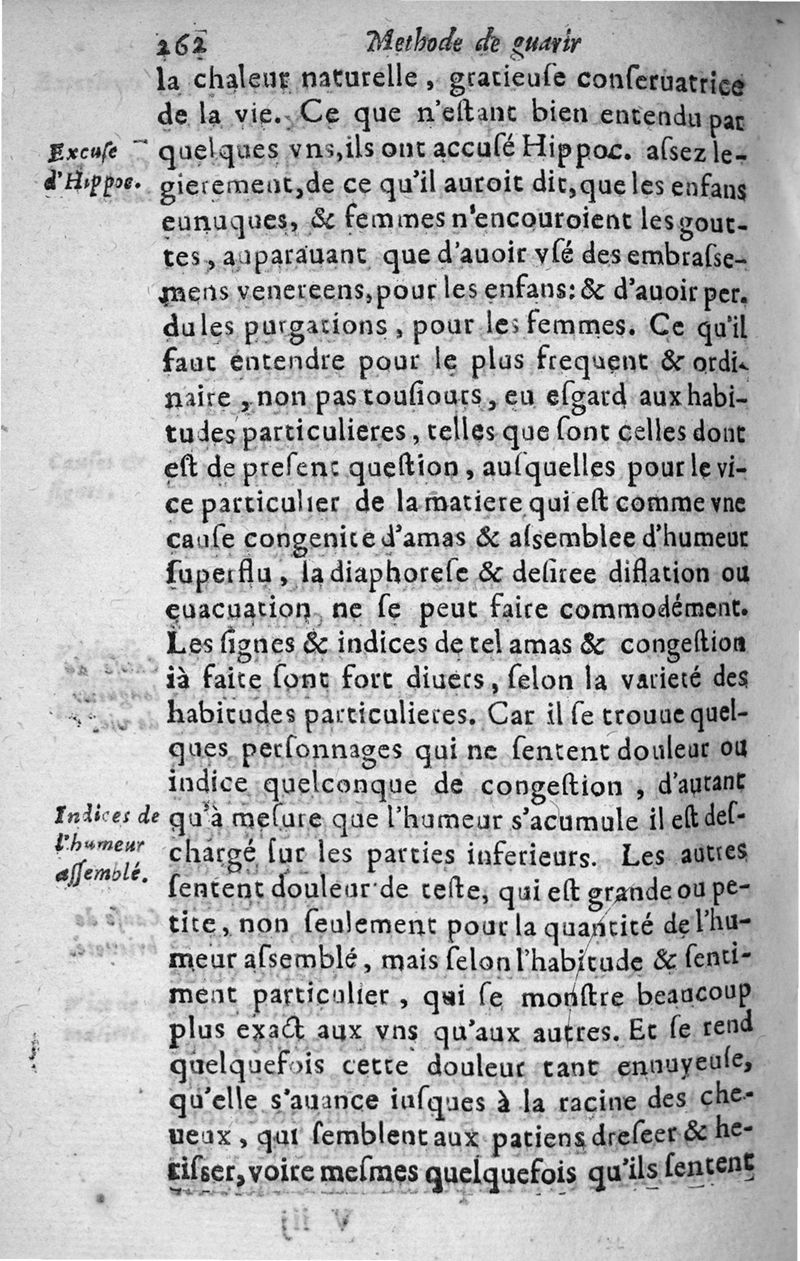 262 Methode de guarir
la chaleur naturelle, gratieuſe conſeruatrice
de la vie. Ce que n'eſtant bien entendu par
Excuſe d'Hippoc.
quelques vns, ils ont accuſé Hippoc. aſsez le-
gierement, de ce qu'il auroit dit, que les enfans
eunuques, & femmes n'encouroient les gout-
tes, auparauant que d'auoir vſé des embraſse-
mens venereens, pour les enfans: & d'auoir per-
du les purgations, pour les femmes. Ce qu'il
faut entendre pour le plus frequent & ordi-
naire, non pas touſiours, eu eſgard aux habi-
tudes particulieres, telles que ſont celles dont
eſt de preſent queſtion, auſquelles pour le vi-
ce particulier de la matiere qui eſt comme vne
cauſe congenite d'amas & aſsemblee d'humeur
ſuperflu, la diaphoreſe & deſiree diflation ou
euacuation ne ſe peut faire commodément.
Les ſignes & indices de tel amas & congeſtion
ià faite ſont fort diuers, ſelon la varieté des
habitudes particulieres. Car il ſe trouue quel-
ques perſonnages qui ne ſentent douleur ou
indice quelconque de congeſtion, d'autant
Indices de l'humeur aſſemblé.
qu'à meſure que l'humeur s'acumule il eſt deſ-
chargé ſur les parties inferieurs. Les autres
ſentent douleur de teſte, qui eſt grande ou pe-
tite, non ſeulement pour la quantité de l'hu-
meur aſsemblé, mais ſelon l'habitude & ſenti-
ment particulier, qui ſe monſtre beaucoup
plus exact aux vns qu'aux autres. Et ſe rend
quelquefois cette douleur tant ennuyeuſe,
qu'elle s'auance iuſques à la racine des che-
ueux, qui ſemblent aux patiens dreſeer & he-
riſser, voire meſmes quelquefois qu'ils ſentent